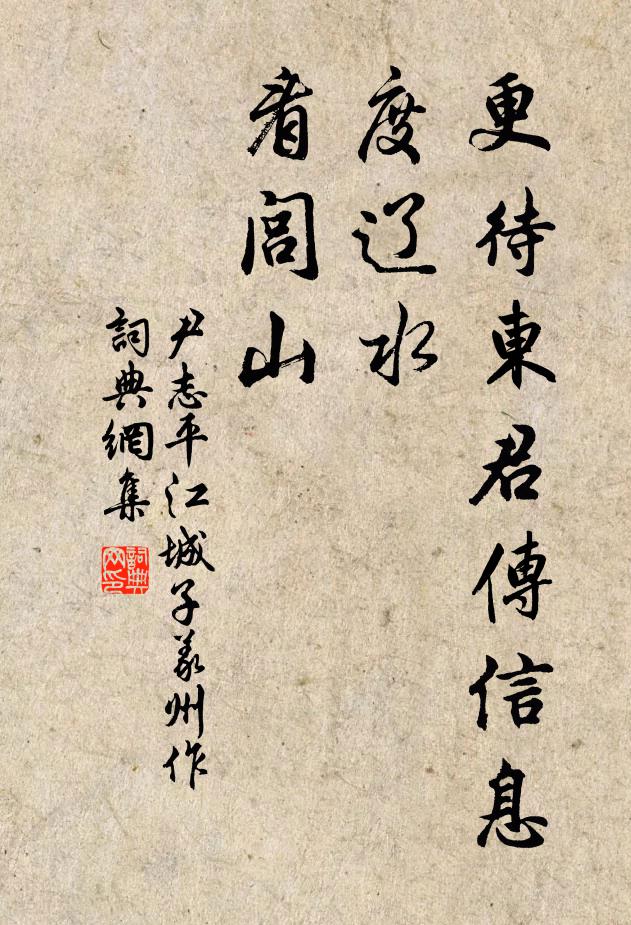 更待東君傳信息
度辽水
看閭山
尹志平江城子義州作
詞典網集
詞典网印